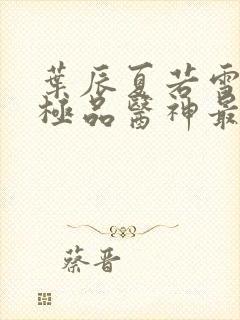 葉辰夏若雪
極品醫神最
蔡晋